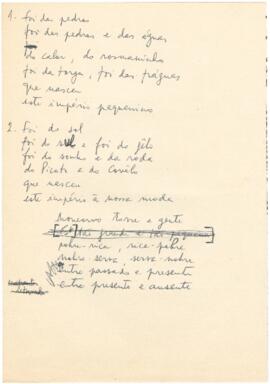 1. foi das pedras
foi das pedras e das águas
do calor, do rosmaninho
foi da torga, foi das fráguas
que nasceu
este império pequenino
2. Foi do sol
foi do sol e foi do gêlo
foi do sonho e da roda
do Picoto e do Covêlo
que nasceu
este império à nossa moda
Moncorvo Torre e gente
tão grande e tão pequena
pobre-rica, rica-pobre
nobre-serva, serva-nobre
entre passado e presente
entre presente e ausente